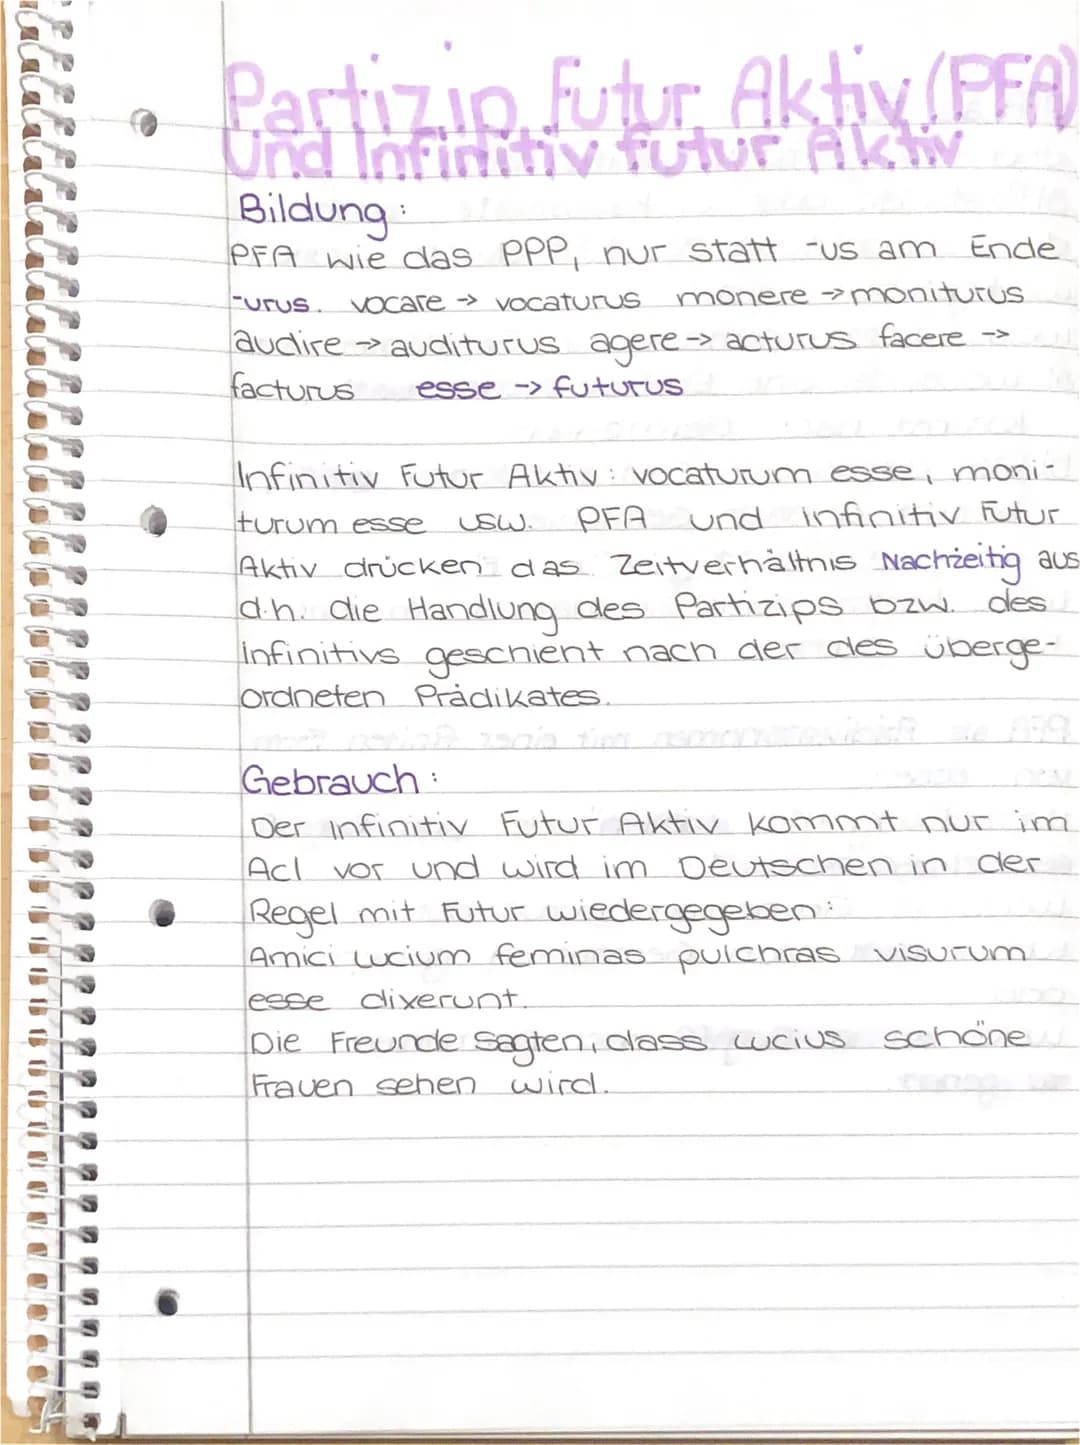 Partizip Futur Aktiv (PFA)
Und Infinitiv futur Aktiv
Bildung:
PFA wie das PPP, nur statt -us am Ende
-urus. vocare -> vocaturus monere -> moniturus
audire -> auditurus agere -> acturus facere ->
facturus esse -> futurus
Infinitiv Futur Aktiv: vocaturum esse, moni-
turum esse usw. PFA und infinitiv Futur
Aktiv drücken das Zeitverhältnis Nachzeitig aus
d.h. die Handlung des Partizips bzw. des
infinitivs geschient nach der des überge-
ordneten Prädikates.
Gebrauch:
Der infinitiv Futur Aktiv kommt nur im
AcI vor und wird im Deutschen in der
Regel mit Futur wiedergegeben:
Amici Lucium feminas pulchras visurum
esse dixerunt.
Die Freunde sagten, dass Lucius schöne
Frauen sehen wird.